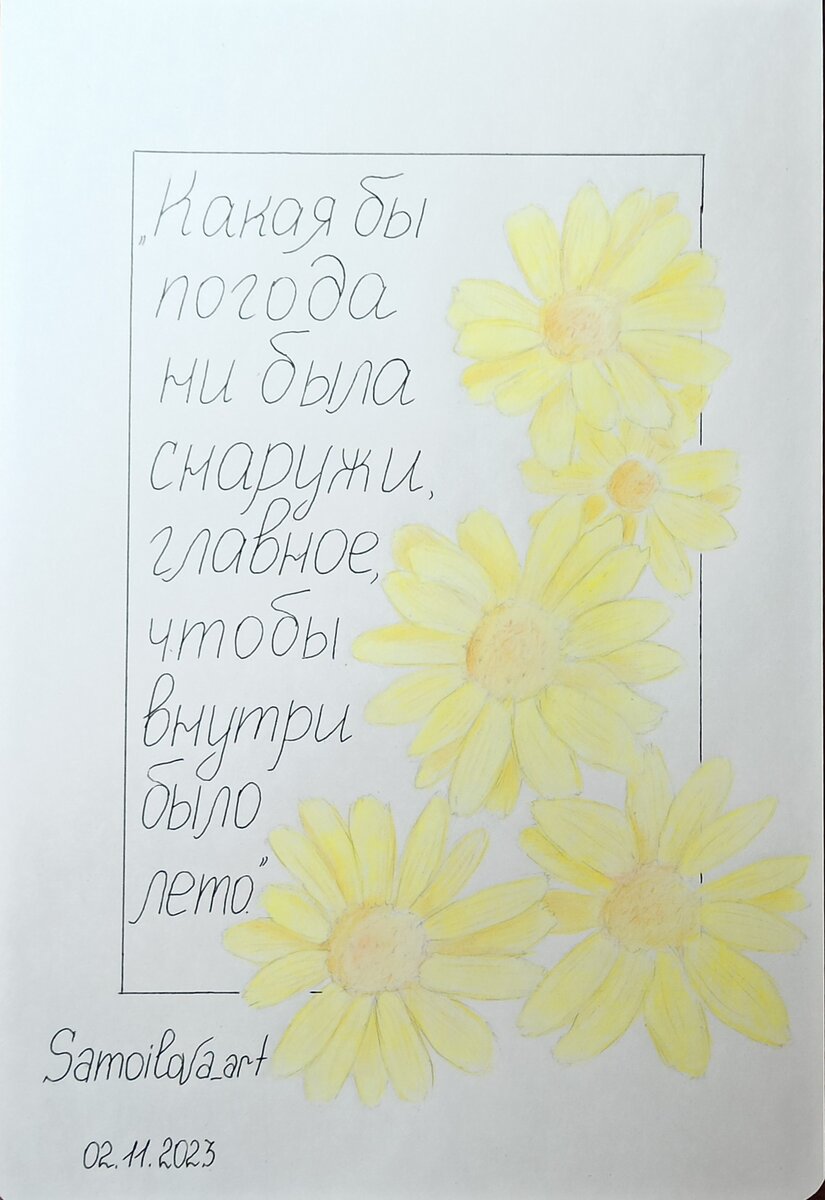 „Какая бы
погода
ни была
снаружи,
главное,
чтобы
внутри
было
лето."
Samoilova_art
02.11.2023